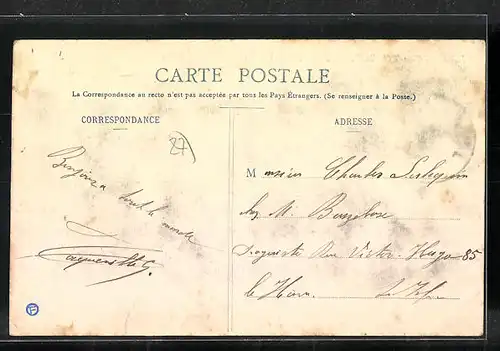 CARTE POSTALE
La Correspondance au recto n'est pas acceptée par tous les Pays Étrangers. (Se renseigner à la Poste.)
CORRESPONDANCE
27
Bonjour a tout le monde
ADRESSE
Monsieur Charles
chez M.
Droguiste Rue Victor-Hugo 85
le Havre